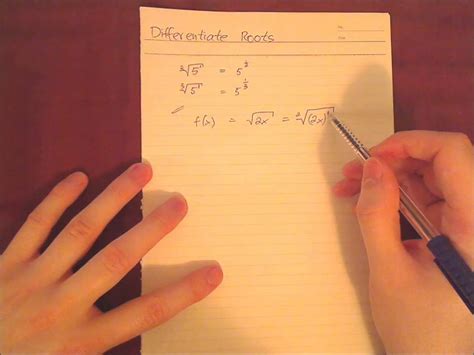 Differentiate Roots
²√5¹ = 5^½
³√5¹ = 5^⅓
f(x) = √2x = ²√(2x)¹